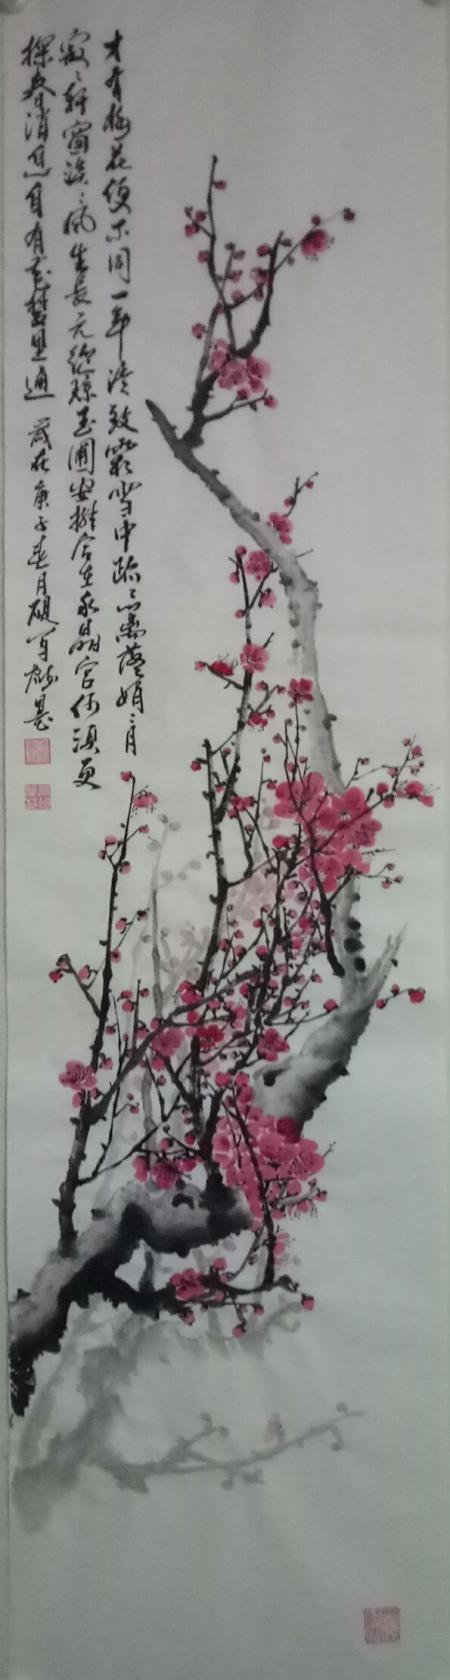 才有梅花便不同一年清致雪霜中疏々篱落娟々月
寂々轩窗淡々风生长元从琼玉圃安排合在水晶宫何须更
探春消息自有梦里通 岁在庚子春月